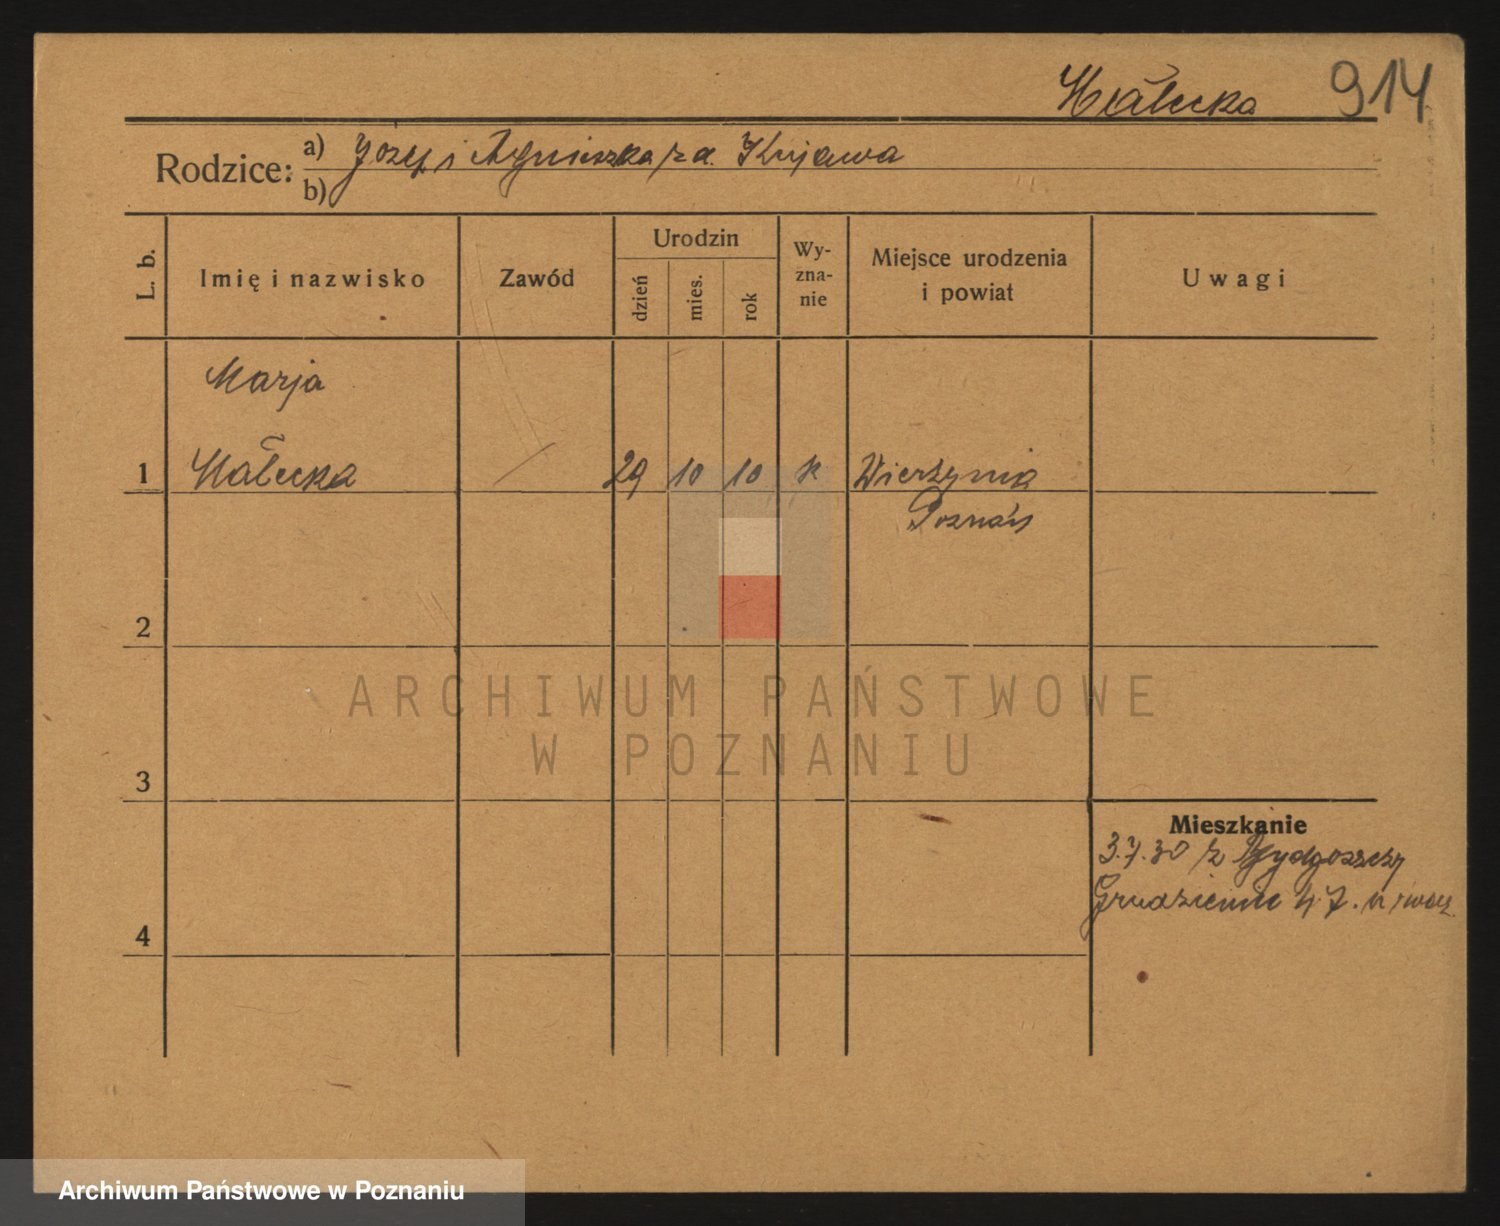 Małecka 914
Rodzice: a) Józef i Agnieszka z d. Kujawa
b)
L. b. Imię i nazwisko Zawód Urodzin dzień mies. rok Wy-zna-nie Miejsce urodzenia i powiat Uwagi
Marja
1 Małecka 29 10 10 k Wierzynia
Poznań
2
3
4
Mieszkanie
3.7.30 z Bydgoszczy
Grudzieniec 47.
ARCHIWUM PAŃSTWOWE
W POZNANIU
Archiwum Państwowe w Poznaniu